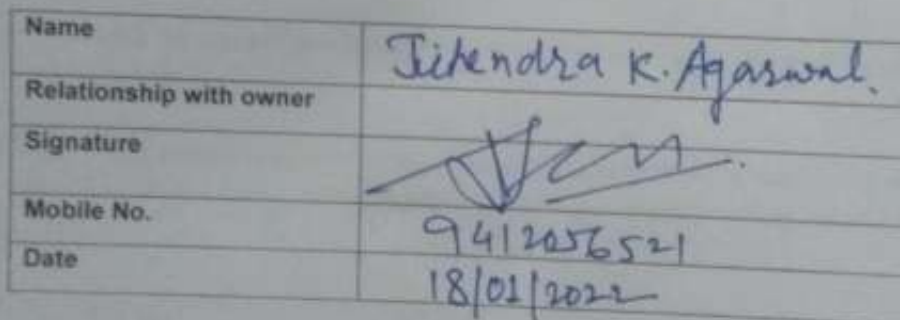 Name Jitendra K. Agarwal.
Relationship with owner
Signature
Mobile No. 9412056521
Date 18/01/2022